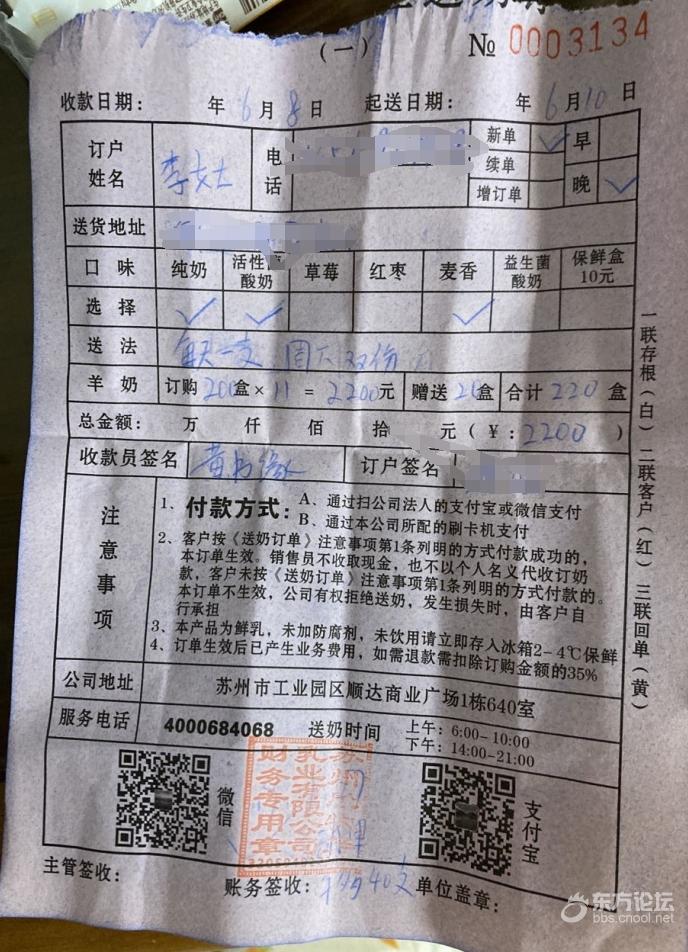 （一）
№ 0003134
收款日期： 年 6 月 8 日 起送日期： 年 6 月 10 日
订户姓名 李女士 电话 新单 ✓ 早
续单 晚 ✓
增订单
送货地址
口味 纯奶 活性 酸奶 草莓 红枣 麦香 益生菌酸奶 保鲜盒10元
选择 ✓ ✓ ✓
送法 每天一支 周六双份
羊奶 订购 200 盒 × 11 = 2200 元 赠送 20 盒 合计 220 盒
总金额： 万 仟 佰 拾 元（￥：2200 ）
收款员签名 订户签名
注意事项
1、付款方式：A、通过扫公司法人的支付宝或微信支付
B、通过本公司所配的刷卡机支付
2、客户按《送奶订单》注意事项第1条列明的方式付款成功的，
本订单生效。销售员不收取现金，也不以个人名义代收订奶
款，客户未按《送奶订单》注意事项第1条列明的方式付款的。
本订单不生效，公司有权拒绝送奶，发生损失时，由客户自
行承担
3、本产品为鲜乳，未加防腐剂，未饮用请立即存入冰箱2-4℃保鲜
4、订单生效后已产生业务费用，如需退款需扣除订购金额的35%
公司地址 苏州市工业园区顺达商业广场1栋640室
服务电话 4000684068 送奶时间 上午：6:00-10:00
下午：14:00-21:00
微信
支付宝
苏州
乳业有限公司
财务专用章
主管签收： 账务签收： 40支 单位盖章：
一联存根（白）二联客户（红）三联回单（黄）
东方论坛
bbs.cnool.net